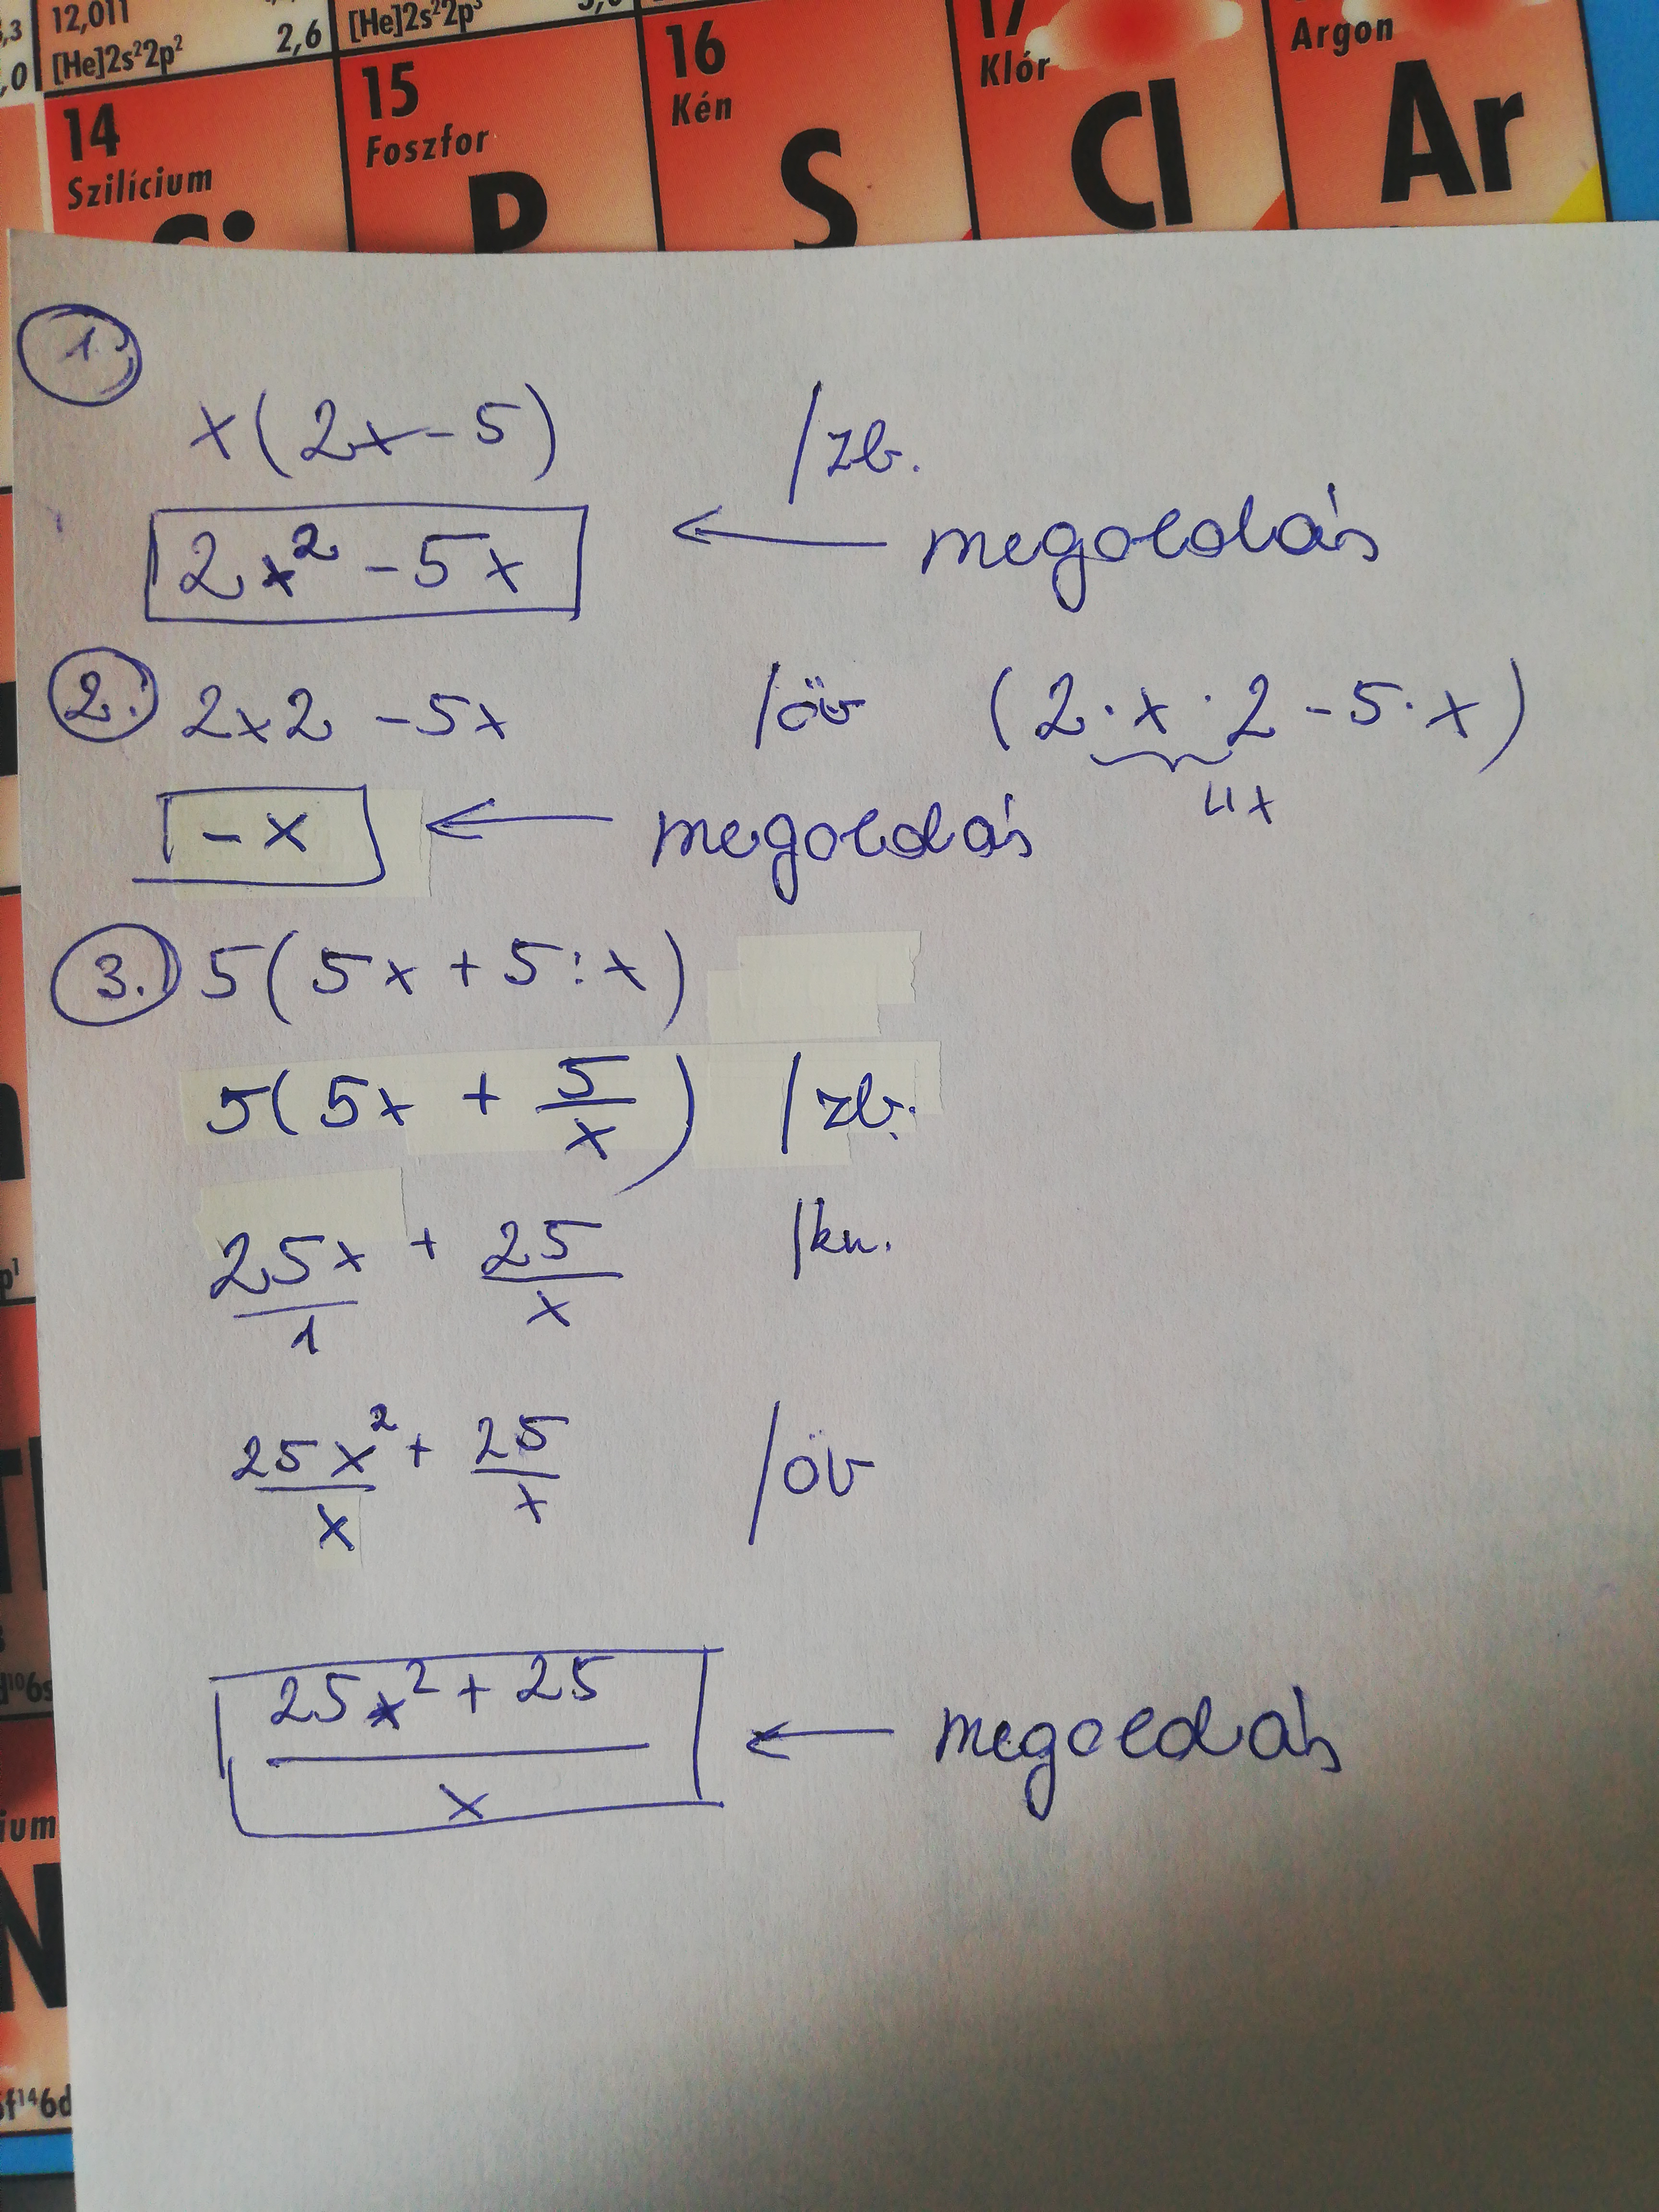 12,011
[He]2s²2p²
2,6
[He]2s²2p³
14
Szilícium
Si
15
Foszfor
P
16
Kén
S
17
Klór
Cl
Argon
Ar
1.
x(2x-5) /zb.
2x² -5x ← megoldás
2. 2x2 -5x /öv (2·x·2-5·x)
4x
-x ← megoldás
3. 5(5x+5:x)
5(5x + 5/x) /zb.
25x/1 + 25/x /kn.
25x²/x + 25/x /öv
(25x²+25)/x ← megoldás